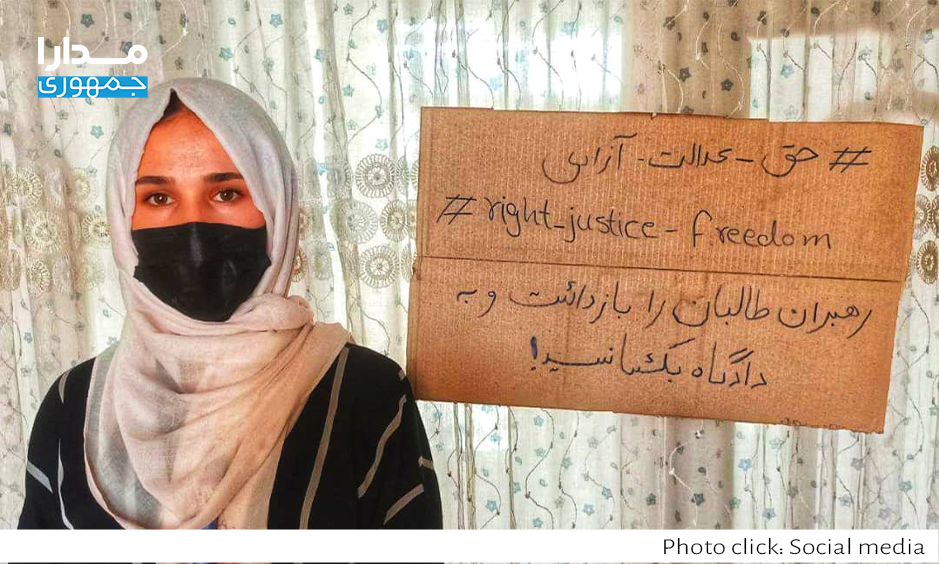 مدارا
جمهوری
# حق - عدالت - آزادی
# right_justice - freedom
رهبران طالبان را بازداشت و به
دادگاه بکشانید!
Photo click: Social media